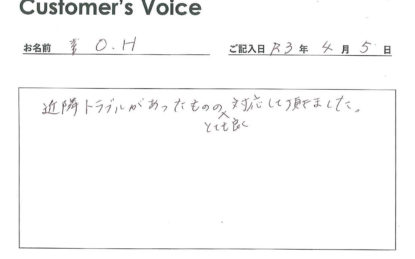 Customer's Voice
お名前 O.H ご記入日 R3 年 4 月 5 日
近隣トラブルがあったものの、対応して頂きました。
とても良く